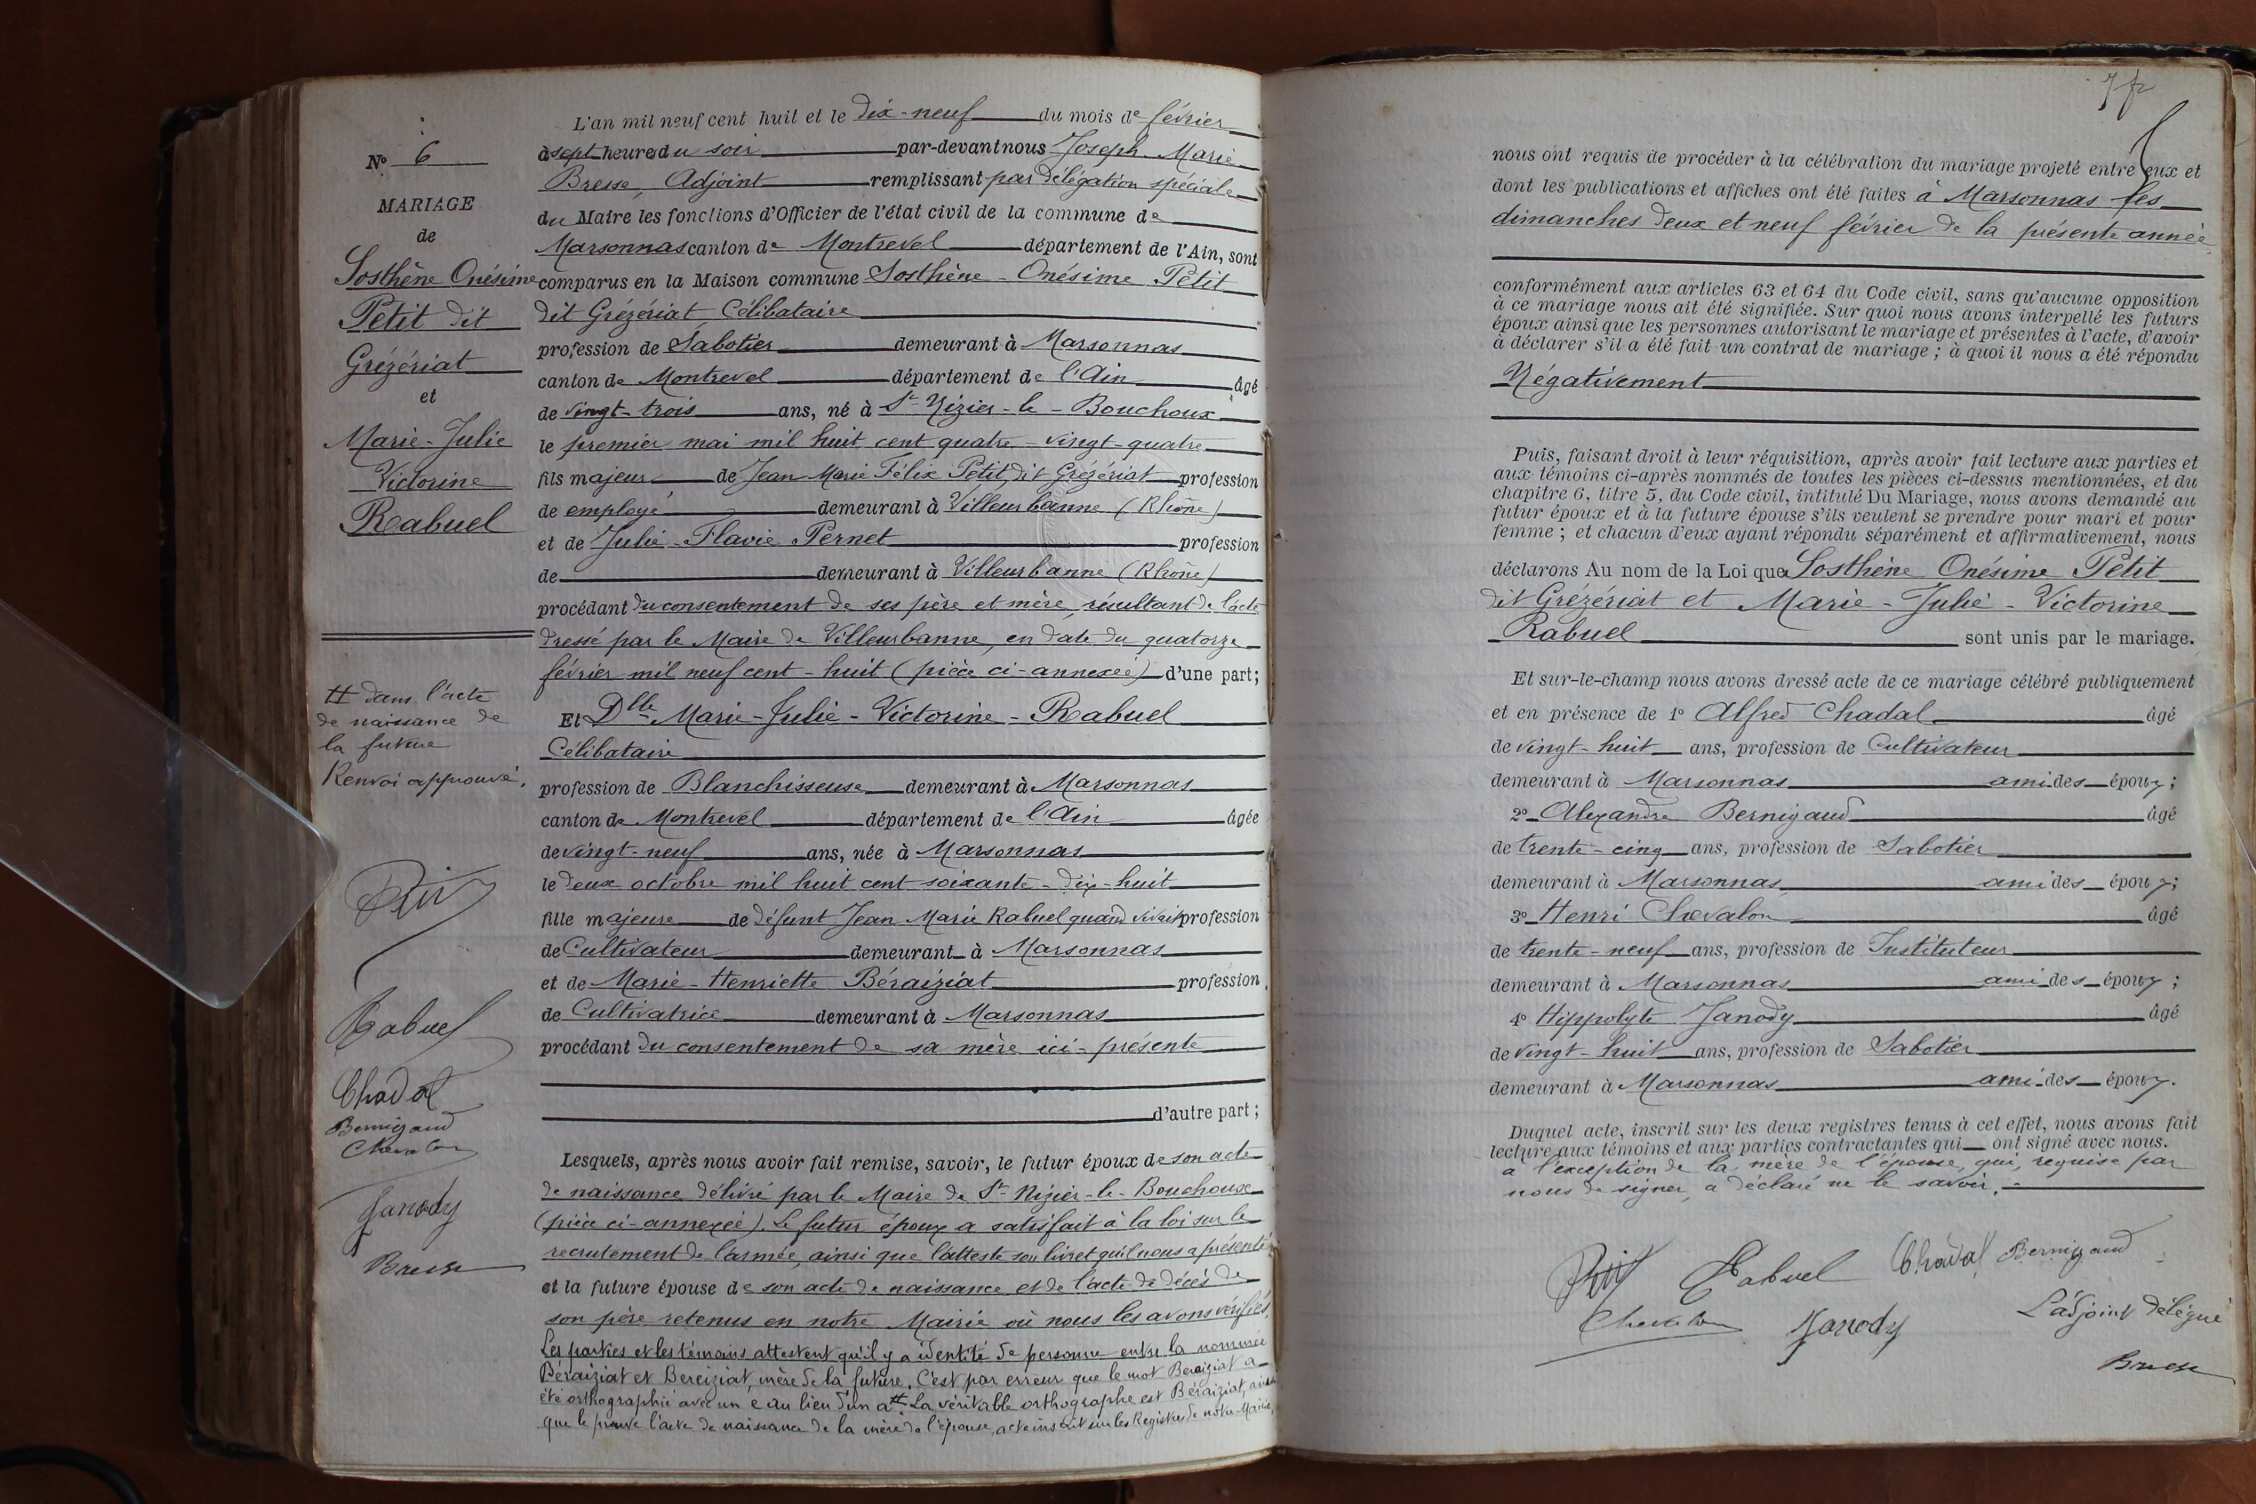 N° 6
MARIAGE
de
Sosthène Onésime
Petit dit
Grézériat
et
Marie-Julie
Victorine
Rabuel
# dans l'acte
de naissance de
la future
Renvoi approuvé.
Petit
Rabuel
Chadal
Bernigaud
Chevalon
Janody
Bresse
L'an mil neuf cent huit et le dix-neuf du mois de février
à sept heures du soir par-devant nous Joseph Marie
Bresse, Adjoint remplissant par délégation spéciale
du Maire les fonctions d'Officier de l'état civil de la commune de
Marsonnas canton de Montrevel département de l'Ain, sont
comparus en la Maison commune Sosthène-Onésime Petit
dit Grézériat, Célibataire
profession de Sabotier demeurant à Marsonnas
canton de Montrevel département de l'Ain âgé
de vingt-trois ans, né à St-Nizier-le-Bouchoux
le premier mai mil huit cent quatre-vingt-quatre
fils majeur de Jean Marie Félix Petit, dit Grézériat profession
de employé demeurant à Villeurbanne (Rhône)
et de Julie-Flavie Pernet profession
de demeurant à Villeurbanne (Rhône)
procédant du consentement de ses père et mère, résultant de l'acte
dressé par le Maire de Villeurbanne, en date du quatorze
février mil neuf cent-huit (pièce ci-annexée) d'une part;
Et Dlle Marie-Julie-Victorine-Rabuel
Célibataire
profession de Blanchisseuse demeurant à Marsonnas
canton de Montrevel département de l'Ain âgée
de vingt-neuf ans, née à Marsonnas
le deux octobre mil huit cent soixante-dix-huit
fille majeure de défunt Jean-Marie Rabuel quand vivait profession
de Cultivateur demeurant à Marsonnas
et de Marie-Henriette Béraiziat profession
de Cultivatrice demeurant à Marsonnas
procédant du consentement de sa mère ici-présente
d'autre part;
Lesquels, après nous avoir fait remise, savoir, le futur époux de son acte
de naissance délivré par le Maire de St-Nizier-le-Bouchoux
(pièce ci-annexée). Le futur époux a satisfait à la loi sur le
recrutement de l'armée, ainsi que l'atteste son livret qu'il nous a présenté
et la future épouse de son acte de naissance et de l'acte de décès de
son père retenus en notre Mairie où nous les avons vérifiés.
Les parties et les témoins attestent qu'il y a identité de personne entre la nommée
Béraiziat et Bereiziat, mère de la future. C'est par erreur que le mot Beraiziat a
été orthographié avec un e au lieu d'un a #. La véritable orthographe est Béraiziat, ainsi
que le prouve l'acte de naissance de la mère de l'épouse, acte inscrit sur les Registres de notre Mairie.
nous ont requis de procéder à la célébration du mariage projeté entre eux et
dont les publications et affiches ont été faites à Marsonnas les
dimanches deux et neuf février de la présente année
conformément aux articles 63 et 64 du Code civil, sans qu'aucune opposition
à ce mariage nous ait été signifiée. Sur quoi nous avons interpellé les futurs
époux ainsi que les personnes autorisant le mariage et présentes à l'acte, d'avoir
à déclarer s'il a été fait un contrat de mariage; à quoi il nous a été répondu
Négativement
Puis, faisant droit à leur réquisition, après avoir fait lecture aux parties et
aux témoins ci-après nommés de toutes les pièces ci-dessus mentionnées, et du
chapitre 6, titre 5, du Code civil, intitulé Du Mariage, nous avons demandé au
futur époux et à la future épouse s'ils veulent se prendre pour mari et pour
femme; et chacun d'eux ayant répondu séparément et affirmativement, nous
déclarons Au nom de la Loi que Sosthène Onésime Petit
dit Grézériat et Marie-Julie-Victorine
Rabuel sont unis par le mariage.
Et sur-le-champ nous avons dressé acte de ce mariage célébré publiquement
et en présence de 1° Alfred Chadal âgé
de vingt-huit ans, profession de Cultivateur
demeurant à Marsonnas ami des époux;
2° Alexandre Bernigaud âgé
de trente-cinq ans, profession de Sabotier
demeurant à Marsonnas ami des époux;
3° Henri Chevalon âgé
de trente-neuf ans, profession de Instituteur
demeurant à Marsonnas ami des époux;
4° Hippolyte Janody âgé
de vingt-huit ans, profession de Sabotier
demeurant à Marsonnas ami des époux.
Duquel acte, inscrit sur les deux registres tenus à cet effet, nous avons fait
lecture aux témoins et aux parties contractantes qui ont signé avec nous.
à l'exception de la mère de l'épouse, qui, requise par
nous de signer, a déclaré ne le savoir.
Petit Rabuel Chadal Bernigaud
Chevalon Janody L'adjoint délégué
Bresse